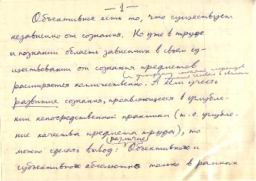 — 1 —
Объективное есть то, что существует
независимо от сознания. Но уже в труде
и познании область зависимых в своем су-
ществовании от сознания предметов
расширяется количественно. А если учесть
развитие сознания, проявляющееся в углубле-
нии непосредственной практики (т.е. углубле-
ние качества предмета труда), то
можно сделать вывод: (различие) Объективного и
субъективного абсолютно только в рамках